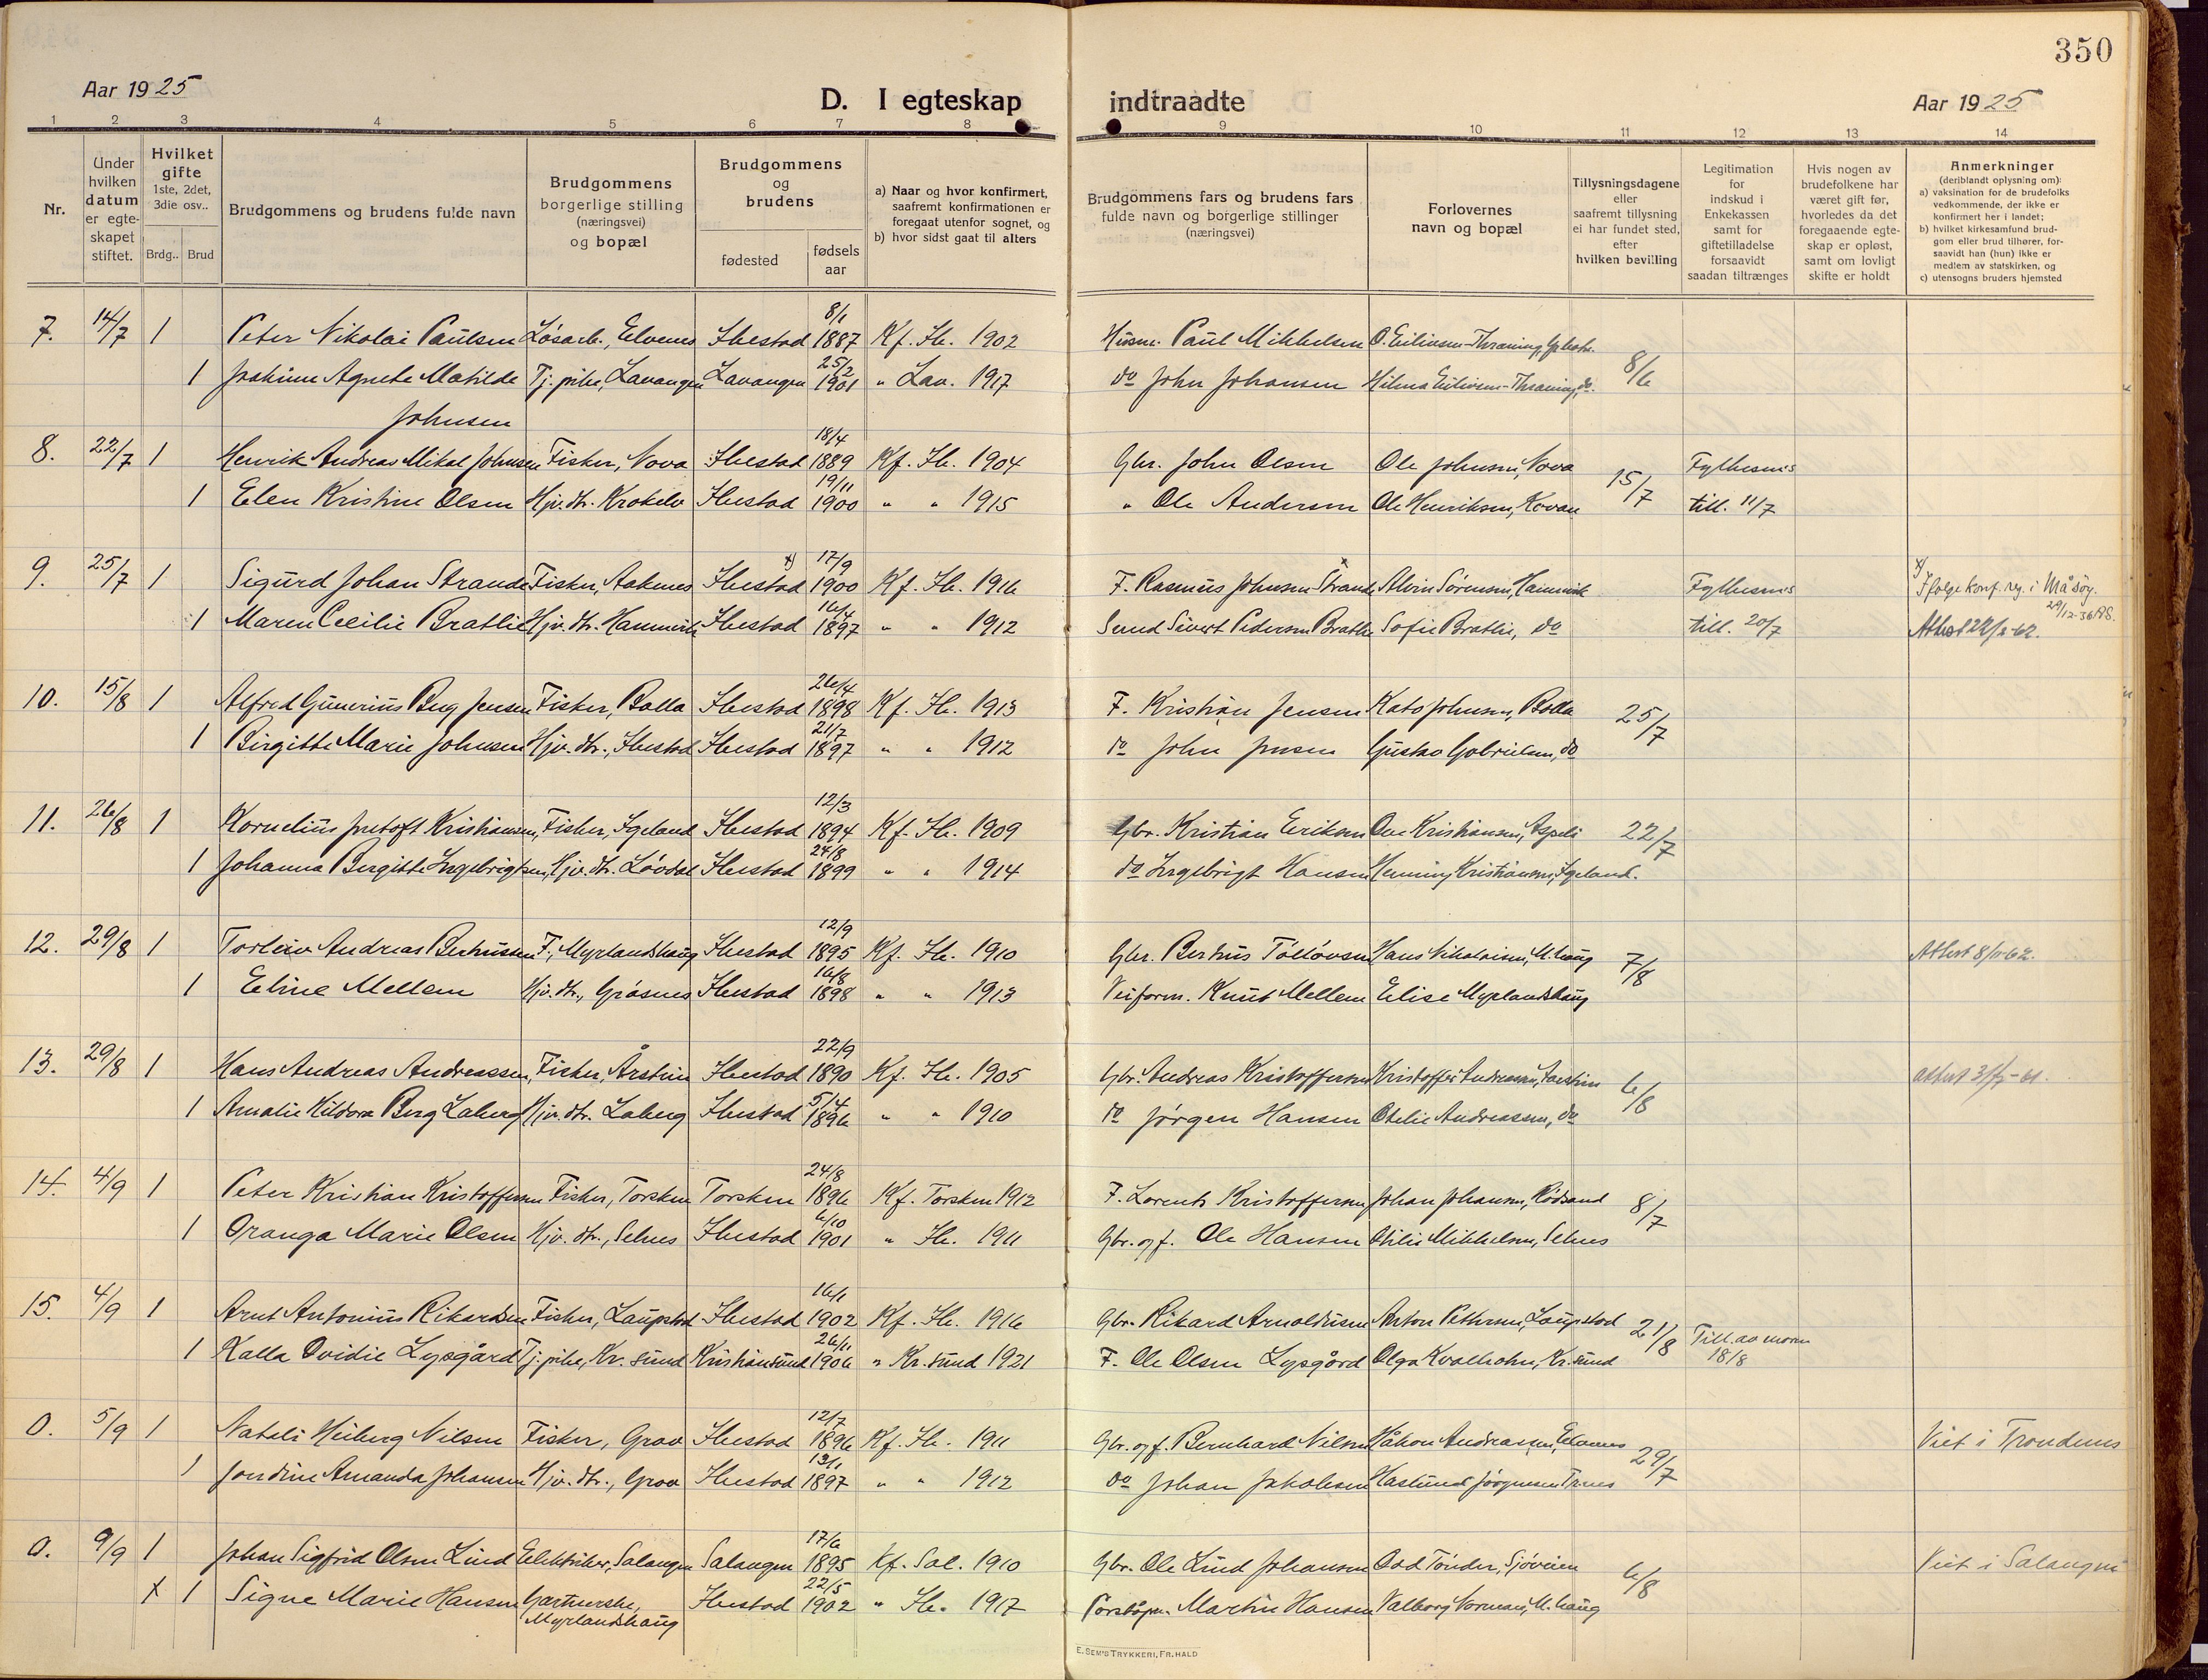 350
Aar 1925
D. I egteskap indtraadte
Aar 1925
1 2 3 4 5 6 7 8 9 10 11 12 13 14
Nr.
Under hvilken datum er egte-skapet stiftet.
Hvilket gifte 1ste, 2det, 3die osv..
Brdg.. Brud
Brudgommens og brudens fulde navn
Brudgommens borgerlige stilling (næringsvei) og bopæl
Brudgommens og brudens
fødested
fødsels aar
a) Naar og hvor konfirmert, saafremt konfirmationen er foregaat utenfor sognet, og
b) hvor sidst gaat til alters
Brudgommens fars og brudens fars fulde navn og borgerlige stillinger (næringsvei)
Forlovernes navn og bopæl
Tillysningsdagene eller saafremt tillysning ei har fundet sted, efter hvilken bevilling
Legitimation for indskud i Enkekassen samt for giftetilladelse forsaavidt saadan tiltrænges
Hvis nogen av brudefolkene har været gift før, hvorledes da det foregaaende egte-skap er opløst, samt om lovligt skifte er holdt
Anmerkninger (deriblandt oplysning om):
a) vaksination for de brudefolks vedkommende, der ikke er konfirmert her i landet;
b) hvilket kirkesamfund brud-gom eller brud tilhører, for-saavidt han (hun) ikke er medlem av statskirken, og
c) utensogns bruders hjemsted
7. 14/7 1 Peter Nikolai Paulsen Løsarb., Elvenes Ibestad 8/1 1887 Kf. Ib. 1902 Husm. Paul Mikkelsen O. Eilivsen-Thraning,
1 Joakime Agnete Matilde Johnsen Tj. pike, Lavangen Lavangen 25/2 1901 " Lav. 1917 do John Johansen Hilma Eilivsen-Thraning, do. 8/6
8. 22/7 1 Henrik Andreas Mikal Johnsen Fisker, Nova Ibestad 18/4 1889 Kf. Ib. 1904 Gbr. John Olsen Ole Johnsen, Nova 15/7 Fylkesnes
1 Elen Kristine Olsen Hjv. dtr. Krokelv Ibestad 19/11 1900 " " 1915 " Ole Andersen Ole Henriksen, Kovan till. 11/7
9. 25/7 1 Sigurd Johan Strande Fisker, Aakenes Ibestad x) 17/9 1900 Kf. Ib. 1916 F. Rasmus Johnsen Strande Alvin Sørensen, Hamnvik Fylkesnes x) Ifølge konf. reg. i Måsøy.
1 Maren Cecilie Bratlie Hjv. dtr. Hamnvik Ibestad 16/4 1897 " " 1912 Sivert Pedersen Bratlie Sofie Bratlie, do till. 20/7 29/12-36
10. 15/8 1 Alfred Gunerius Berg Jensen Fisker, Bolla Ibestad 26/4 1898 Kf. Ib. 1913 F. Kristian Jensen Kato Johnsen, Bolla 25/7
1 Birgitte Marie Johnsen Hjv. dtr., Ibestad Ibestad 21/7 1897 " " 1912 do John Jensen Gustav Gabrielsen, do
11. 26/8 1 Kornelius Jentoft Kristiansen, Fisker, Igeland Ibestad 12/3 1894 Kf. Ib. 1909 Gbr. Kristian Eriksen Ole Kristiansen, Aspeli 22/7
1 Johanna Bergitte Ingebrigtsen, Hjv. dtr. Løvdal Ibestad 24/8 1899 " " 1914 do Ingebrigt Hansen Henning Kristiansen, Igeland.
12. 29/8 1 Torleiv Andreas Berhussen F., Myrlandshaug Ibestad 12/9 1895 Kf. Ib. 1910 Gbr. Berhus Tolløvsen Hans Nikolaisen, M.haug 7/8 Attest
1 Eline Mellem Hjv. dtr., Gråsnes Ibestad 16/8 1898 " " 1913 Veiform. Knut Mellem Elise Myrlandshaug
13. 29/8 1 Hans Andreas Andreassen, Fisker, Årstein Ibestad 22/9 1890 Kf. Ib. 1905 Gbr. Andreas Kristoffersen Kristoffer Andreassen, Aarstein 6/8
1 Amalie Hildora Berg Laberg Hjv. dtr. Laberg Ibestad 5/4 1896 " " 1910 do Jørgen Hansen Otelie Andreassen, do
14. 4/9 1 Peter Kristian Kristoffersen Fisker, Torsken Torsken 24/8 1896 Kf. Torsken 1912 F. Lorents Kristoffersen Johan Johansen, Rødsand 8/7
1 Oranga Marie Olsen Hjv. dtr., Selnes Ibestad 6/10 1901 " Ib. 1911 Gbr. og f. Ole Hansen Otilie Mikkelsen, Selnes
15. 4/9 1 Arnt Antonius Rikardsen Fisker, Laupstad Ibestad 16/1 1902 Kf. Ib. 1916 Gbr. Rikard Arnoldusen Anton Pettersen, Laupstad 21/8 Till. av moren 18/8
1 Kalla Ovidie Lysgård Tj. pike, Kr. sund Kristiansund 26/11 1906 " Kr. sund 1921 F. Ole Olsen Lysgård Olga Kvalholm, Kr. sund
0. 5/9 1 Natali Heiberg Nilsen Fisker, Grov Ibestad 12/7 1896 Kf. Ib. 1911 Gbr. og f. Bernhard Nilsen Håkon Andreassen, Elvenes 29/7 Viet i Trondenes
1 Jondine Amanda Johansen Hjv. dtr., Grov Ibestad 13/1 1897 " " 1912 do Johan Jakobsen Haslund Jørgensen
0. 9/9 1 Johan Sigfrid Olsen Lind Elektriker, Salangen Salangen 17/6 1895 Kf. Sal. 1910 Gbr. Ole Lind Johansen Odd Tønder, Sjøveien 6/8 Viet i Salangen
x 1 Signe Marie Hansen Gartnerske, Myrlandshaug Ibestad 22/5 1902 " Ib. 1917 Martin Hansen Valborg Norman, M.haug
E. SEM'S TRYKKERI, FR.HALD